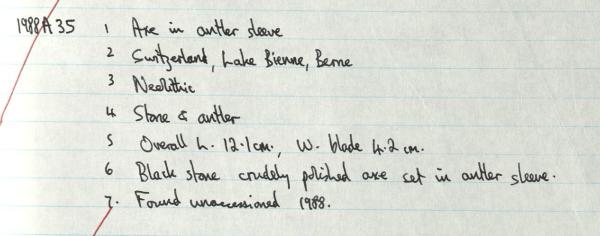 1988A35 1 Axe in antler sleeve
2 Switzerland, Lake Bienne, Berne
3 Neolithic
4 Stone & antler
5 Overall L. 12.1cm., W. blade 4.2 cm.
6 Black stone crudely polished axe set in antler sleeve.
7. Found unaccessioned 1988.